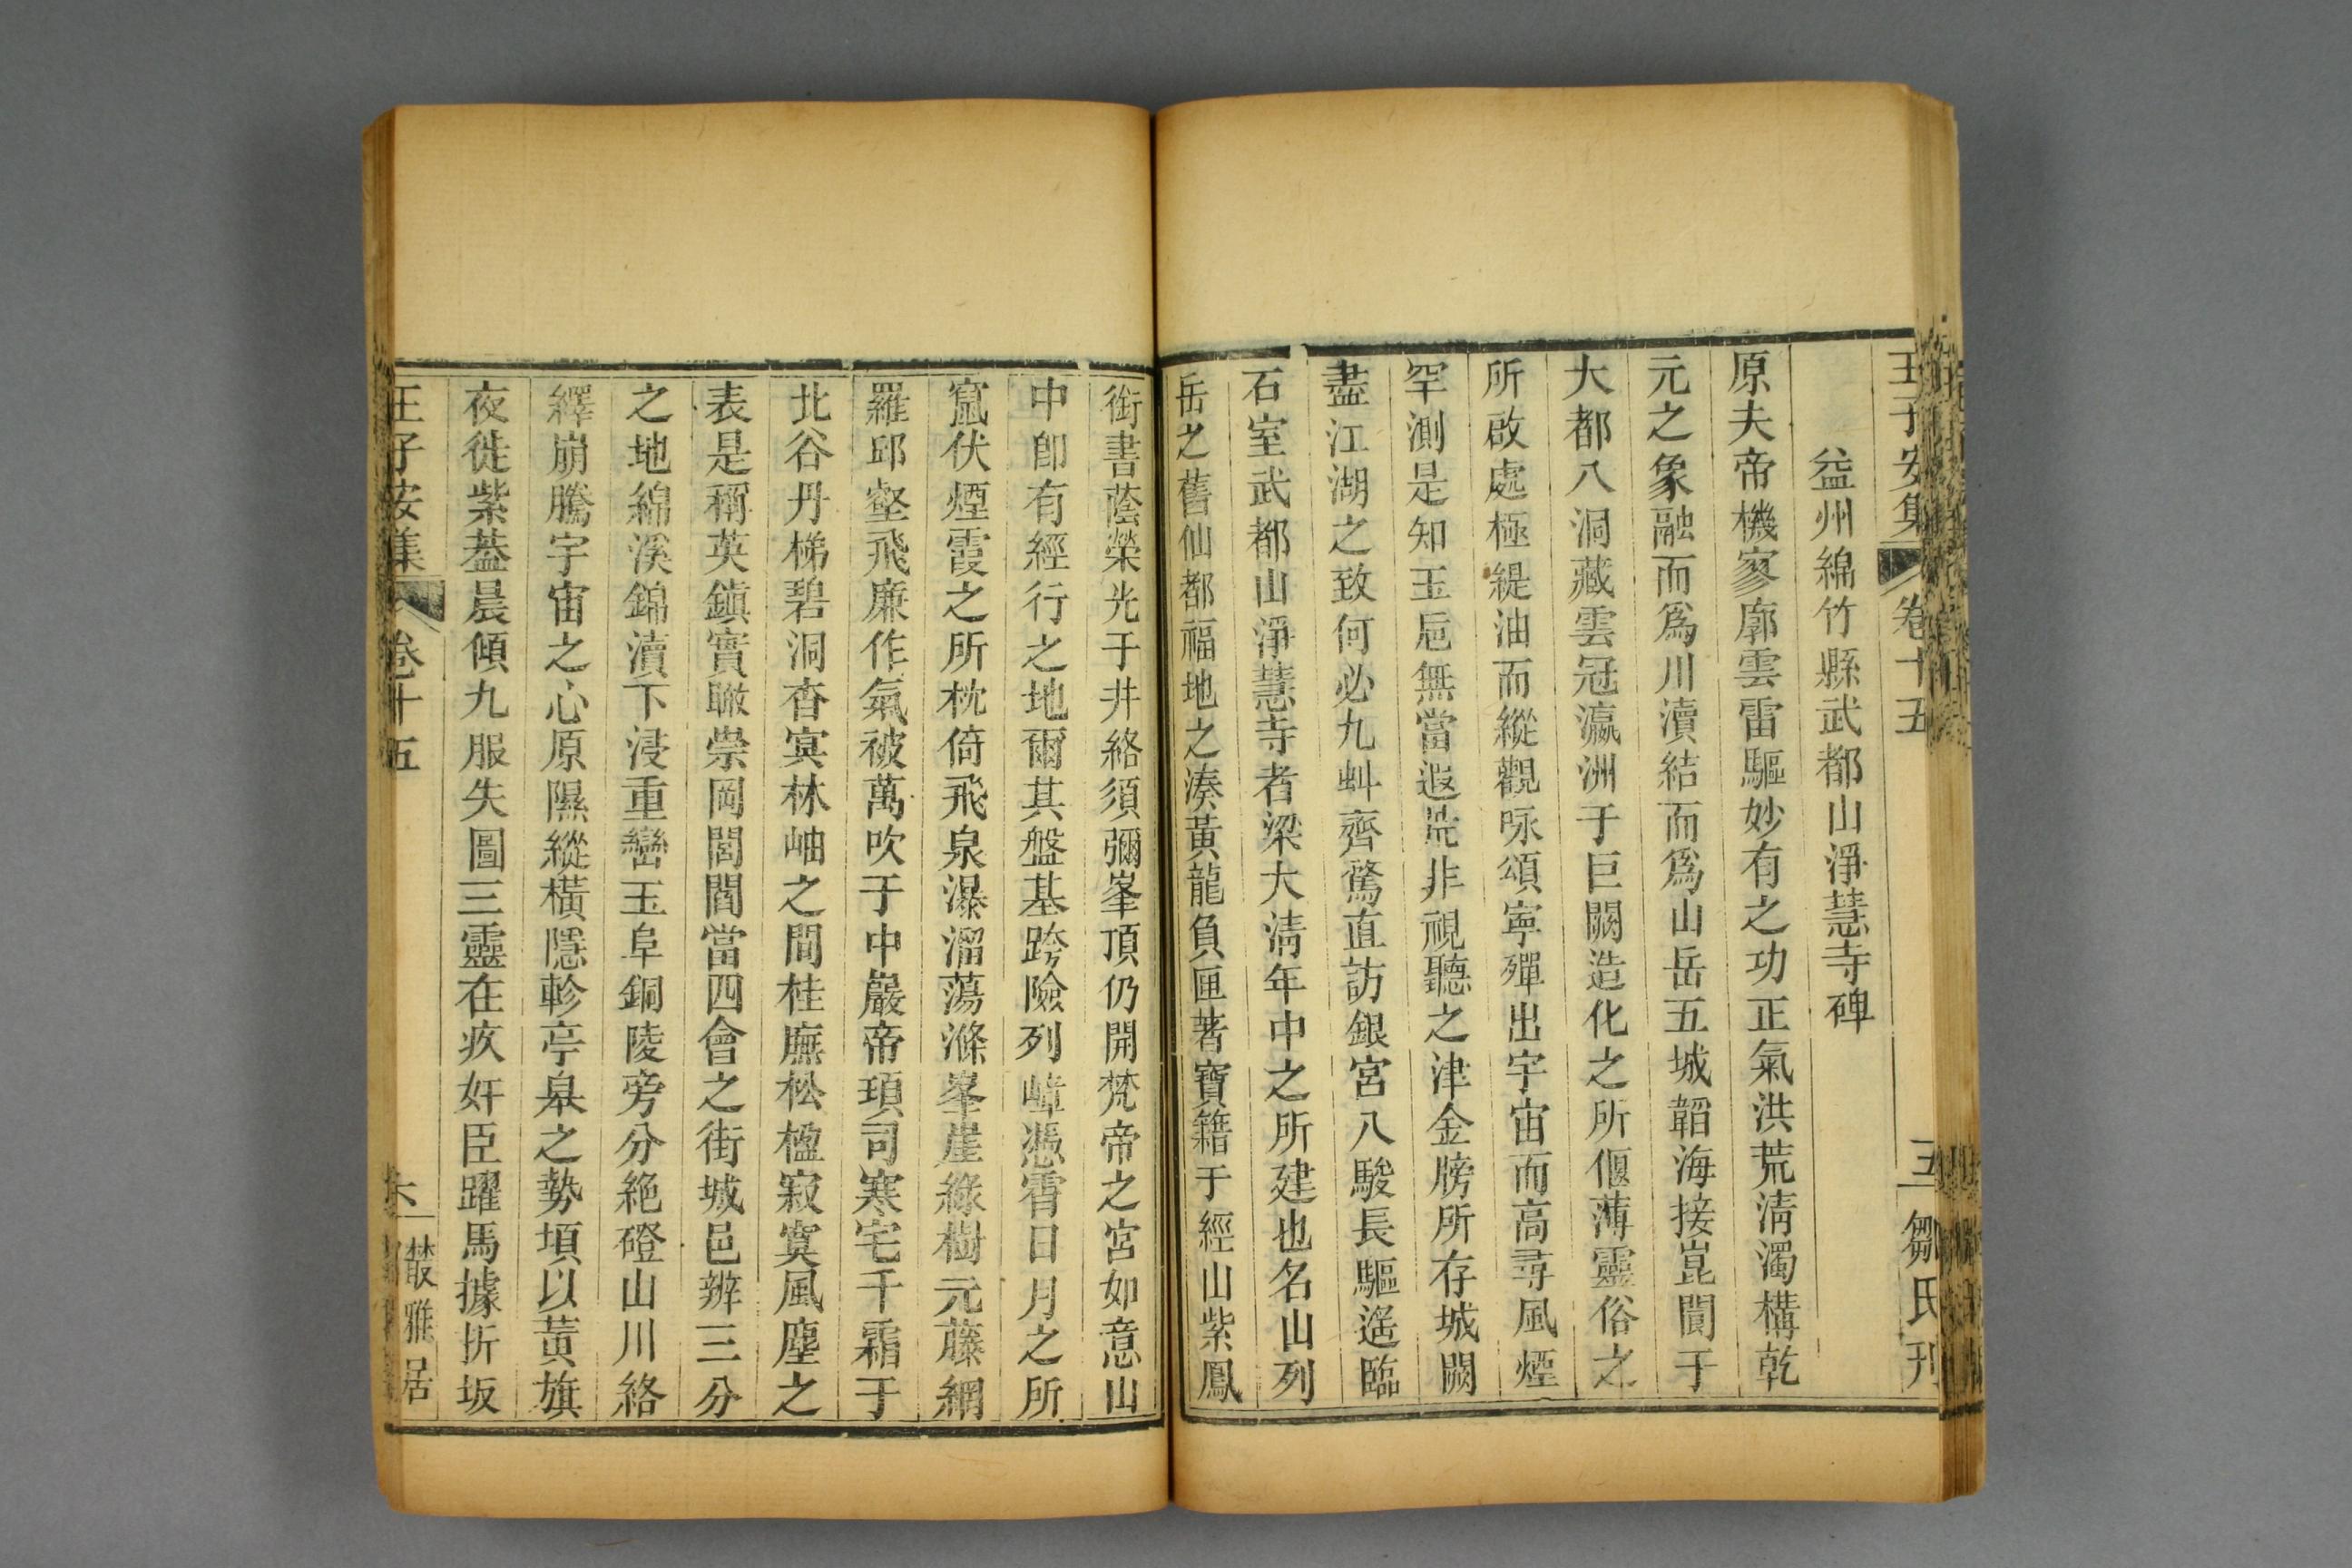 王子安集 卷十五 五 鄒氏刋
益州綿竹縣武都山淨慧寺碑
原夫帝機寥廓雲雷驅妙有之功正氣洪荒淸濁構乾
元之象融而爲川瀆結而爲山岳五城韜海接崑閬于
大都八洞藏雲冠瀛洲于巨闕造化之所偃薄靈俗之
所啟處極緹油而縱觀咏頌寧殫出宇宙而高尋風煙
罕測是知玉巵無當遐㫖非視聽之津金牓所存城闕
盡江湖之致何必九虯齊騖直訪銀宮八駿長驅遙臨
石室武都山淨慧寺者梁大淸年中之所建也名山列
岳之舊仙都福地之湊黃龍負匣著寶籍于經山紫鳳
銜書蔭榮光于井絡須彌峯頂仍開梵帝之宮如意山
中卽有經行之地爾其盤基跨險列嶂憑霄日月之所
竄伏煙霞之所枕倚飛泉瀑溜蕩滌峯崖綠樹元藤網
羅邱壑飛廉作氣被萬吹于中巖帝頊司寒宅千霜于
北谷丹梯碧洞杳冥林岫之間桂廡松楹寂寞風塵之
表是稱英鎭實瞰崇岡閭閻當四會之街城邑辨三分
之地綿溪錦瀆下浸重巒玉阜銅陵旁分絶磴山川絡
繹崩騰宇宙之心原隰縱橫隱軫亭皋之勢頃以黃旗
夜徙紫葢晨傾九服失圖三靈在疚奸臣躍馬據折坂
王子安集 卷十五 六 叢雅居